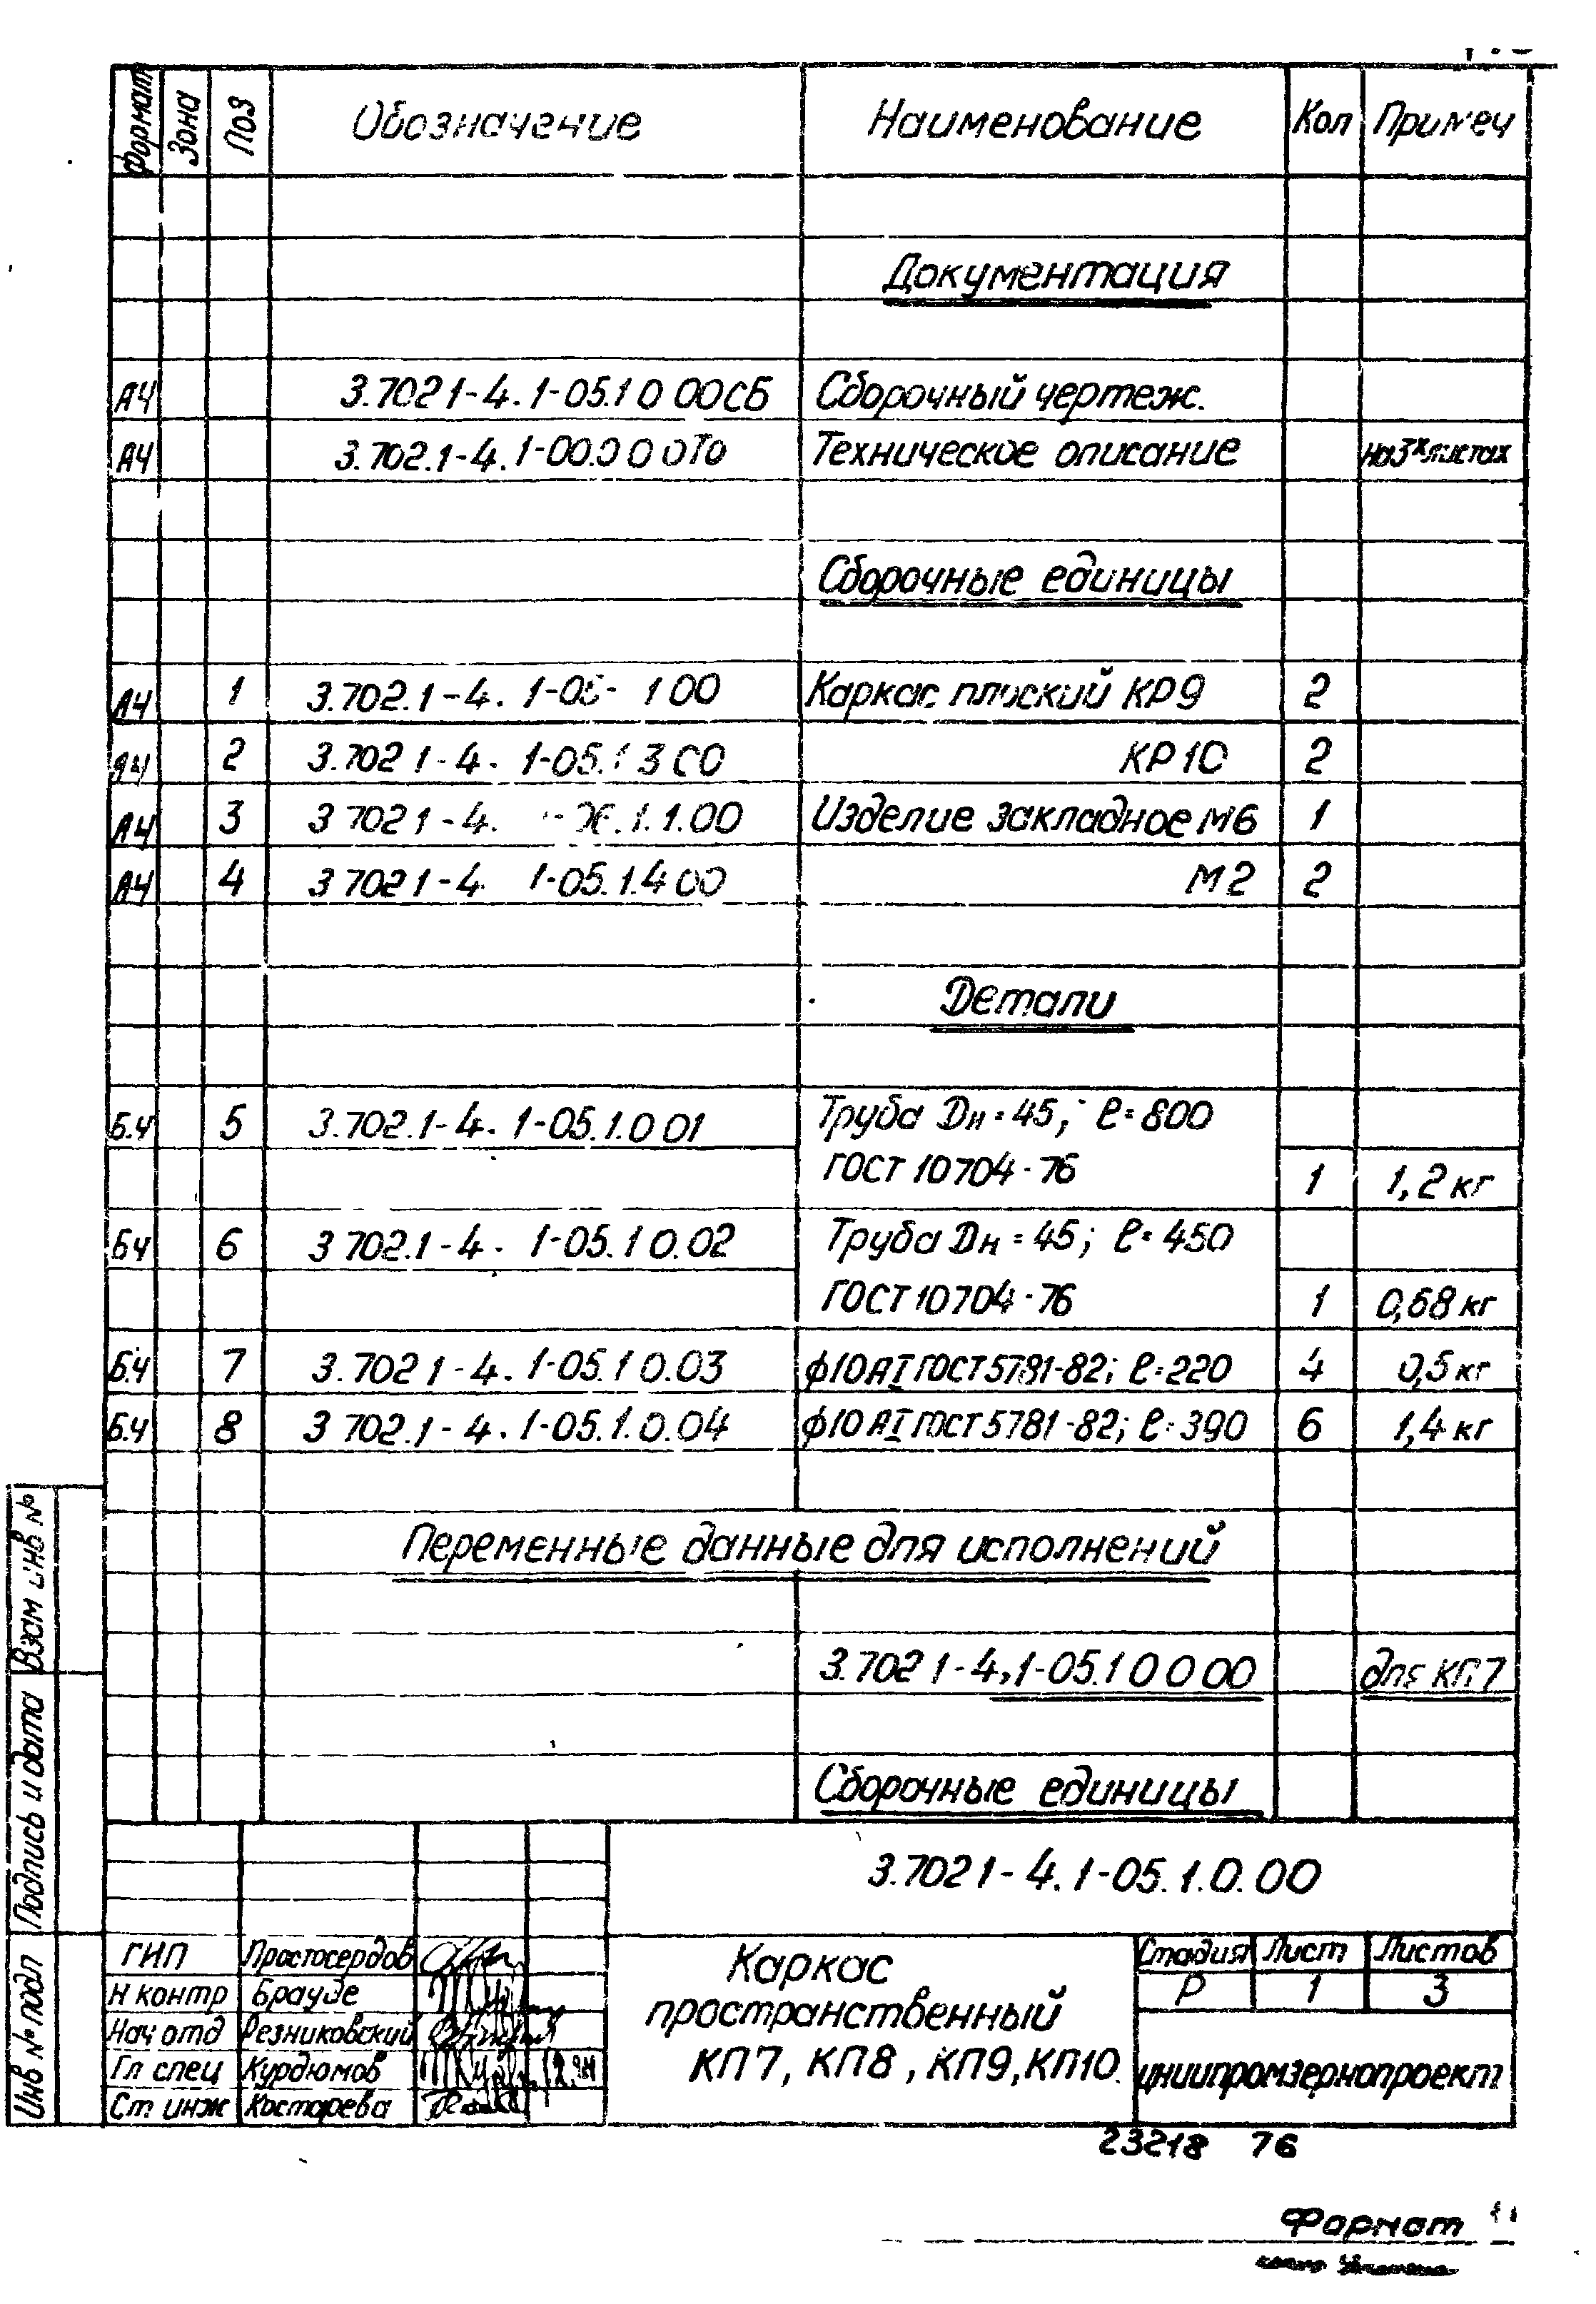 Формат Зона Поз Обозначение Наименование Кол Примеч
Документация
А4 3.702 1-4. 1-05.1 0 00СБ Сборочный чертеж.
А4 3.702.1-4. 1-00.0 0 0ТО Техническое описание на 3х листах
Сборочные единицы
А4 1 3.702.1-4. 1 00 Каркас плоский КР9 2
А4 2 3.702 1-4. 1-05.1 3 00 КР10 2
А4 3 3 702 1-4. .1.1.00 Изделие закладное М6 1
А4 4 3 702 1-4 1-05.1.4 00 М2 2
Детали
Б.4 5 3.702.1-4. 1-05.1.0 01 Труба Дн=45; ℓ=800
ГОСТ 10704-76 1 1,2 кг
Б4 6 3 702.1-4. 1-05.1 0.02 Труба Дн=45; ℓ=450
ГОСТ 10704-76 1 0,68 кг
Б.4 7 3.702 1-4. 1-05.1 0.03 ф10 АI ГОСТ 5781-82; ℓ=220 4 0,5 кг
Б.4 8 3 702.1-4. 1-05.1.0.04 ф10 АI ГОСТ 5781-82; ℓ=390 6 1,4 кг
Переменные данные для исполнений
3.702 1-4.1-05.1 0 0 00 для КП7
Сборочные единицы
3.702 1-4.1-05.1.0.00
ГИП Простосердов
Н контр Брауде
Нач отд Резниковский
Гл спец Курдюмов
Ст инж Костарева
Каркас
пространственный
КП7, КП8, КП9, КП10.
Стадия Лист Листов
Р 1 3
ЦНИИпромзернопроект
Взам инв №
Подпись и дата
Инв № подл
23218 76
Формат